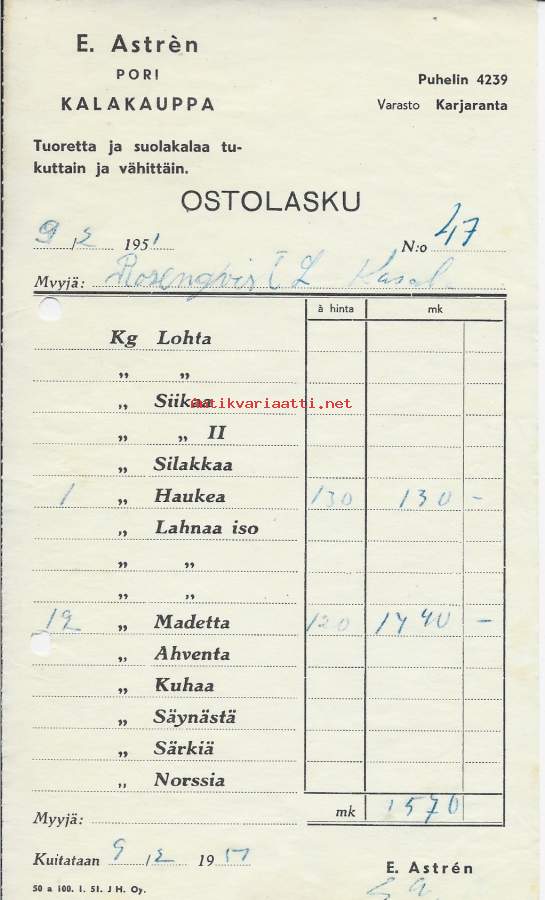 E. Astrèn
PORI
KALAKAUPPA
Puhelin 4239
Varasto Karjaranta
Tuoretta ja suolakalaa tu-
kuttain ja vähittäin.
OSTOLASKU
9/2 1951 N:o 47
Mvyjä: Rosenqvist L
à hinta mk
Kg Lohta
„ „
„ Siikaa
antikvariaatti.net
„ „ II
„ Silakkaa
1 „ Haukea 130 130 -
„ Lahnaa iso
„ „
„ „
12 „ Madetta 120 1440 -
„ Ahventa
„ Kuhaa
„ Säynästä
„ Särkiä
„ Norssia
mk 1570
Myyjä:
Kuitataan 9/2 1951
E. Astrén
50 a 100. 1. 51. J H. Oy.